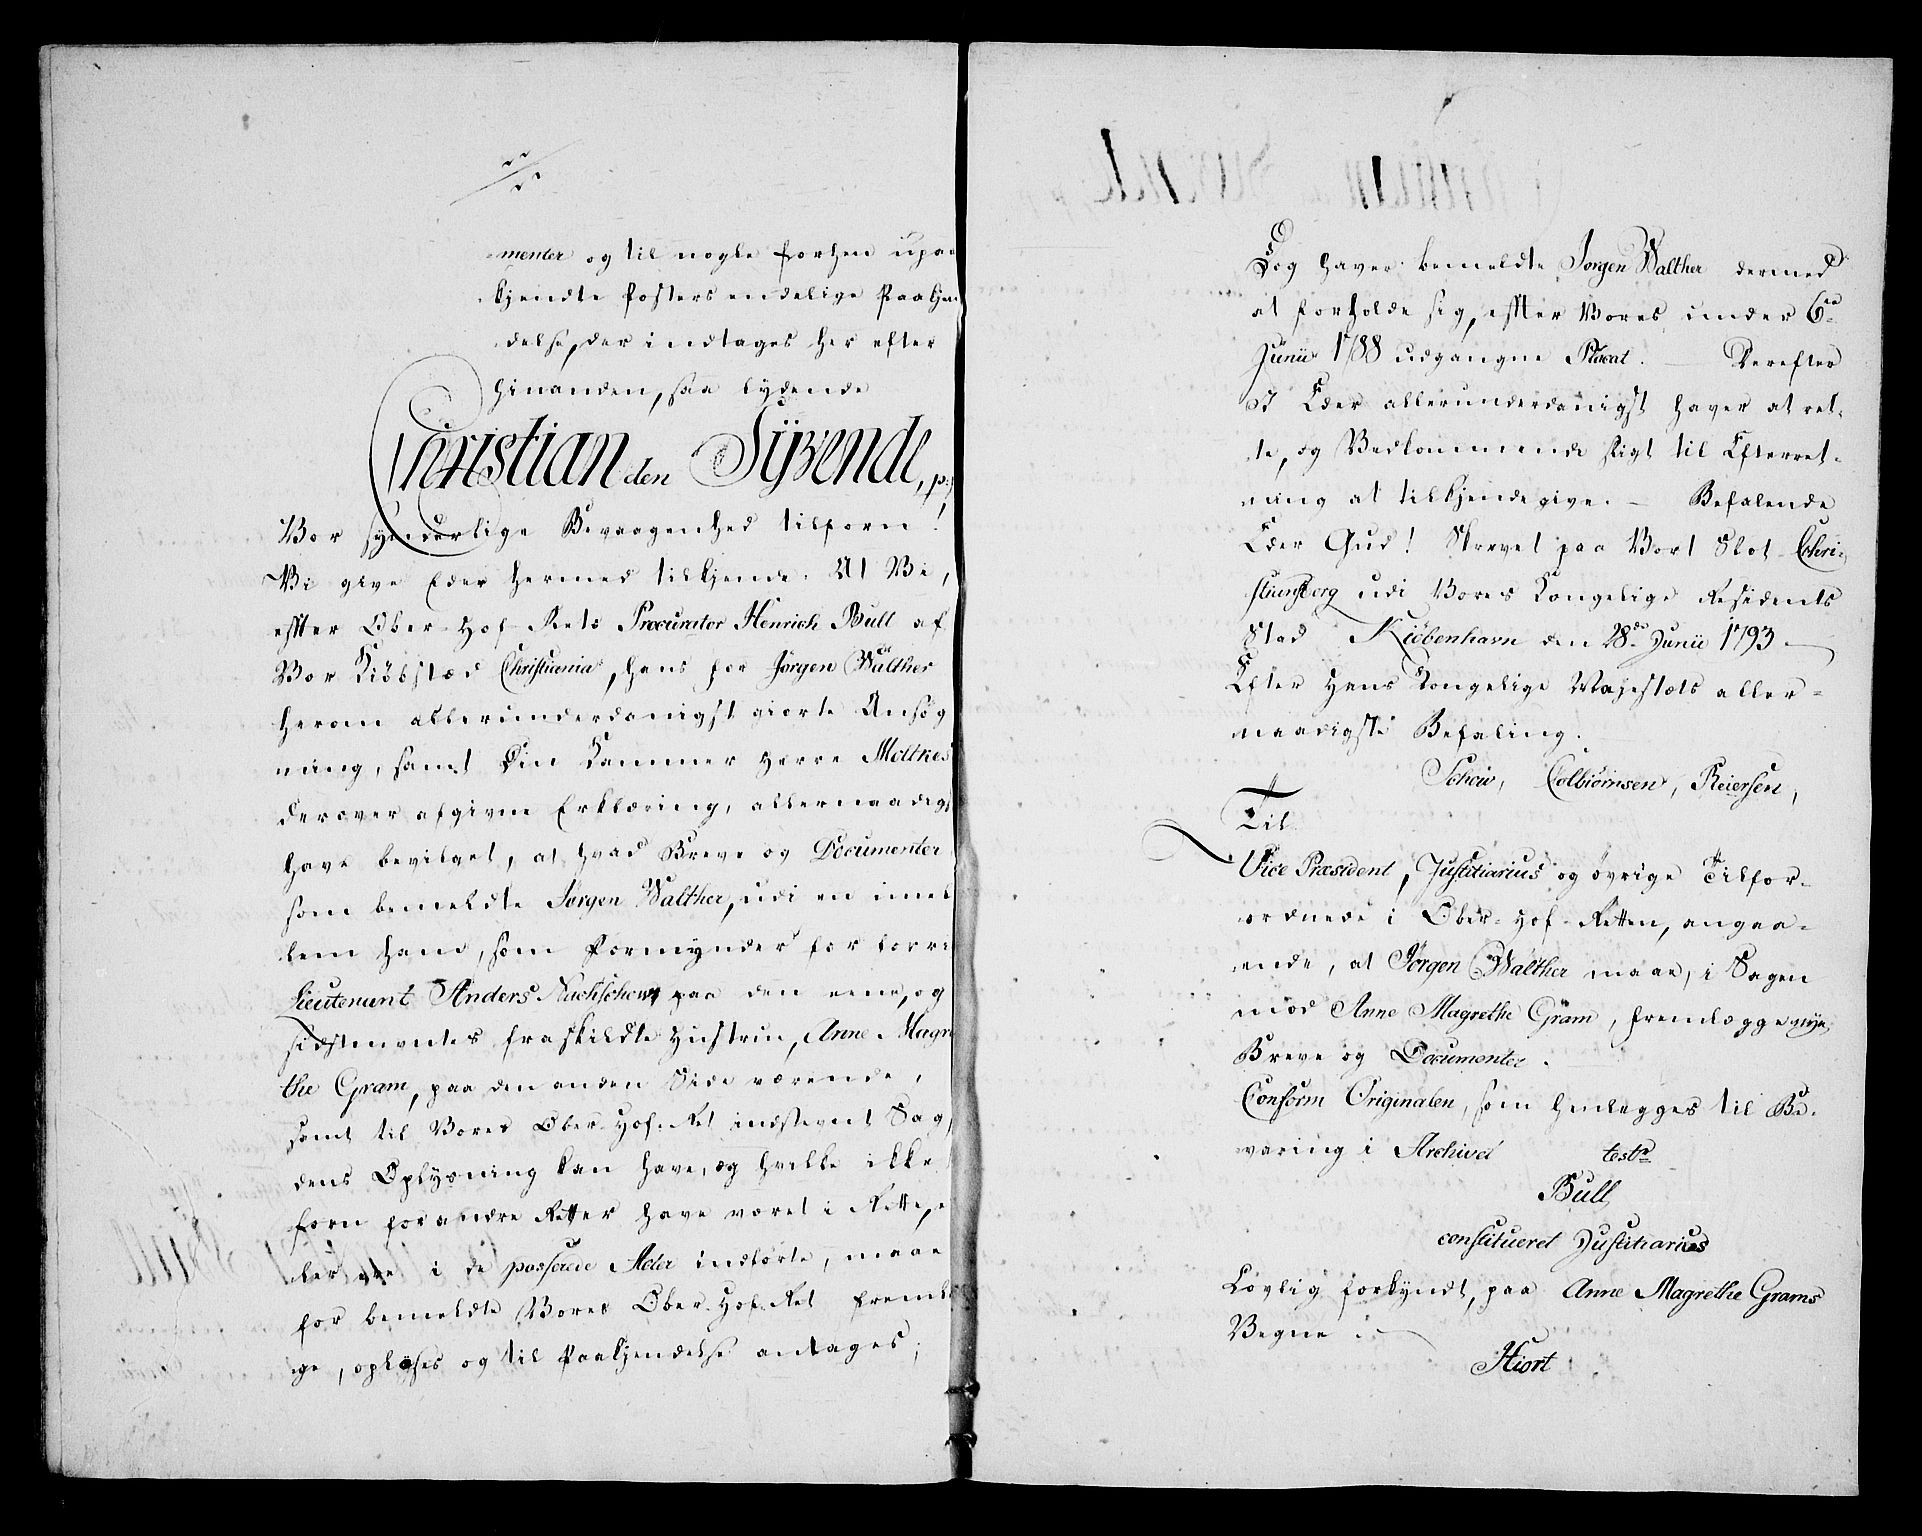 menter og til nogle forhen upaa
kjendte Posters endelige Paakjen
delse, der indtages her efter
hinanden, saa lydende
Christian den Syvende, p:
Vor synderlige Bevaagenhed tilforn!
Vi give Eder hermed tilkjende. At Vi,
effter Ober-Hof-Rets Procurator Henrich Bull af
Vor Kiöbstæd Christiania, hans for Jørgen Walther
herom allerunderdanigst giorte Ansøg
ning, samt Din Kammer Herre Moltkes
derover afgivne Erklæring, allernaadigst
have bevilget, at hvad Breve og Documenter
som bemeldte Jørgen Walther, udi en imel
lem ham, som Formynder for
Lieutenant Anders paa den eene, og
sidstnevntes fraskildte Hustrue, Anne Magre
the Gram, paa den anden Side værende,
samt til Vores Ober-Hof-Ret indstevnt Sag,
dens Oplysning kan have, og hvilke ikke
forn for andre Retter have været i Rette, e
ler ere i de passerede Acter indførte, maae
for bemeldte Vores Ober-Hof-Ret fremlæ
ge, oplyses og til Paakjendelse antages;
Dog haver bemeldte Jørgen Walther dermed
at forholde sig, effter Vores under 6te
Junii 1788 udgangne Placat. — Derefter
I Eder allerunderdanigst haver at ret-
te, og Vedkommende sligt til Efterret-
ning at tilkjendegive. — Befalende
Eder Gud! Skrevet paa Vort Slot Chri-
stiansborg udi Vores Kongelige Residents
Stad Kiöbenhavn den 28de Junii 1793 —
Efter Hans Kongelige Majestæts aller-
naadigste Befaling.
Schow, Colbiørnsen, Reiersen,
Til
Vice Præsident, Justitiarius og øvrige Tilfor-
ordnede i Ober-Hof-Retten, angaa-
ende, at Jørgen Walther maae, i Sagen
mod Anne Magrethe Gram, fremlægge nye
Breve og Documenter.
Conform Originalen, som henlegges til Be-
varing i Archivet test:
Bull
constitueret Justitiarius
Lovlig forkyndt, paa Anne Magrethe Grams
Vegne
Hiort